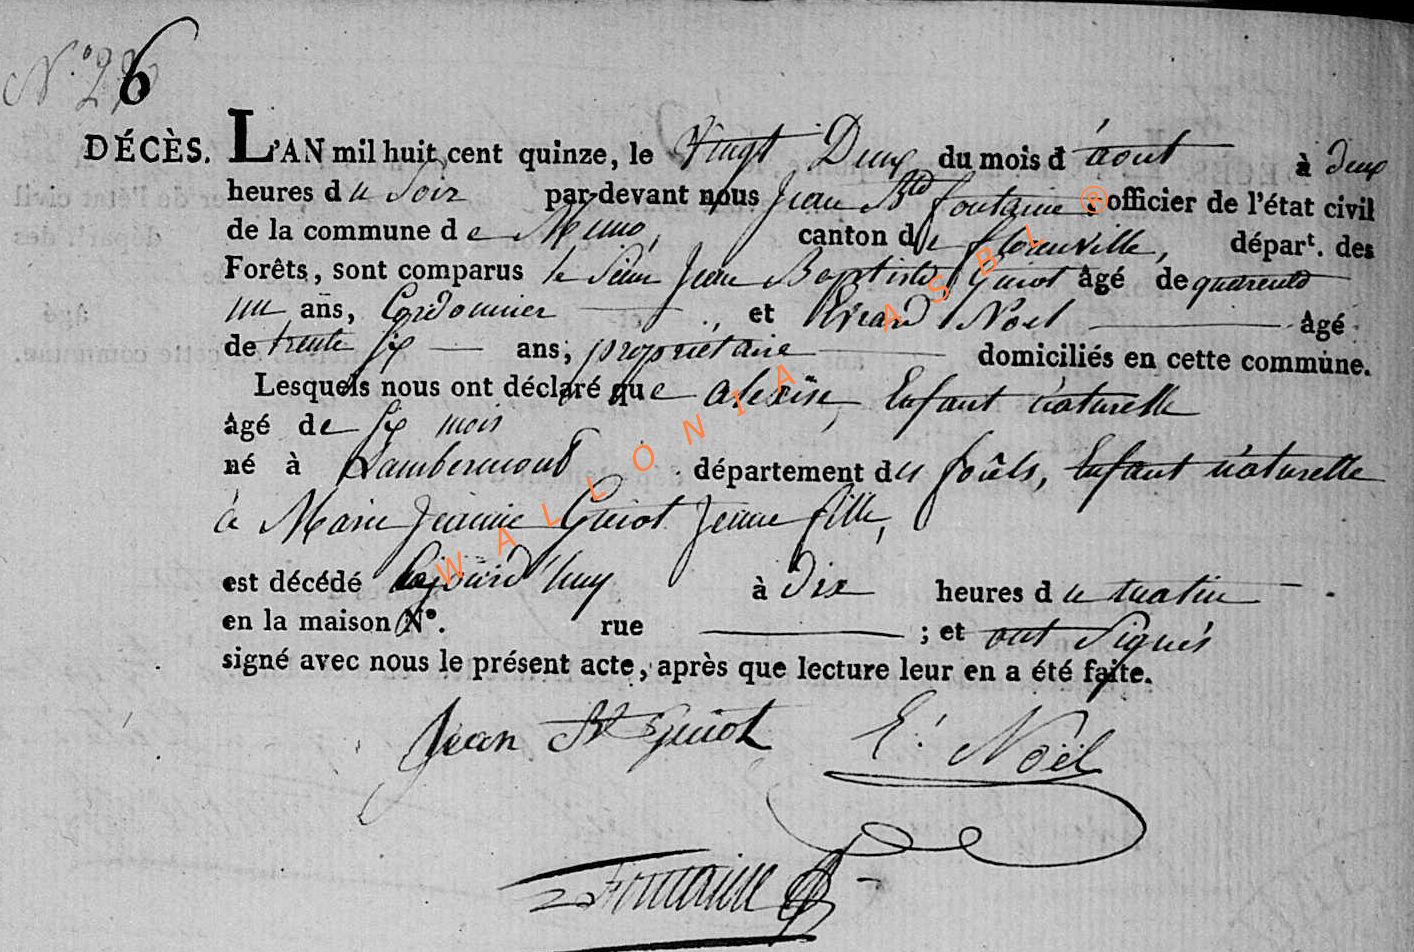 N.° 26
DÉCÈS. L'AN mil huit cent quinze, le Vingt Deux du mois d'aout à deux
heures du Soir par-devant nous Jean Bte fontaine officier de l'état civil
de la commune de Muno, canton de florenville, départ. des
Forêts, sont comparus le Sieur Jean Baptiste Guiot âgé de quarente
un ans, Cordonnier et Evrard Noel âgé
de trente six ans, propriétaire domiciliés en cette commune.
Lesquels nous ont déclaré que alexise, Enfant naturelle
âgé de six mois
né à Lambermont département des forêts, Enfant naturelle
à Marie Jeanne Guiot Jeune fille,
est décédé aujourd'huy à dix heures du matin
en la maison N°. rue ; et ont signés
signé avec nous le présent acte, après que lecture leur en a été faite.
Jean Bt Guiot E. Noël
Fontaine
WALLONIA ASBL ®